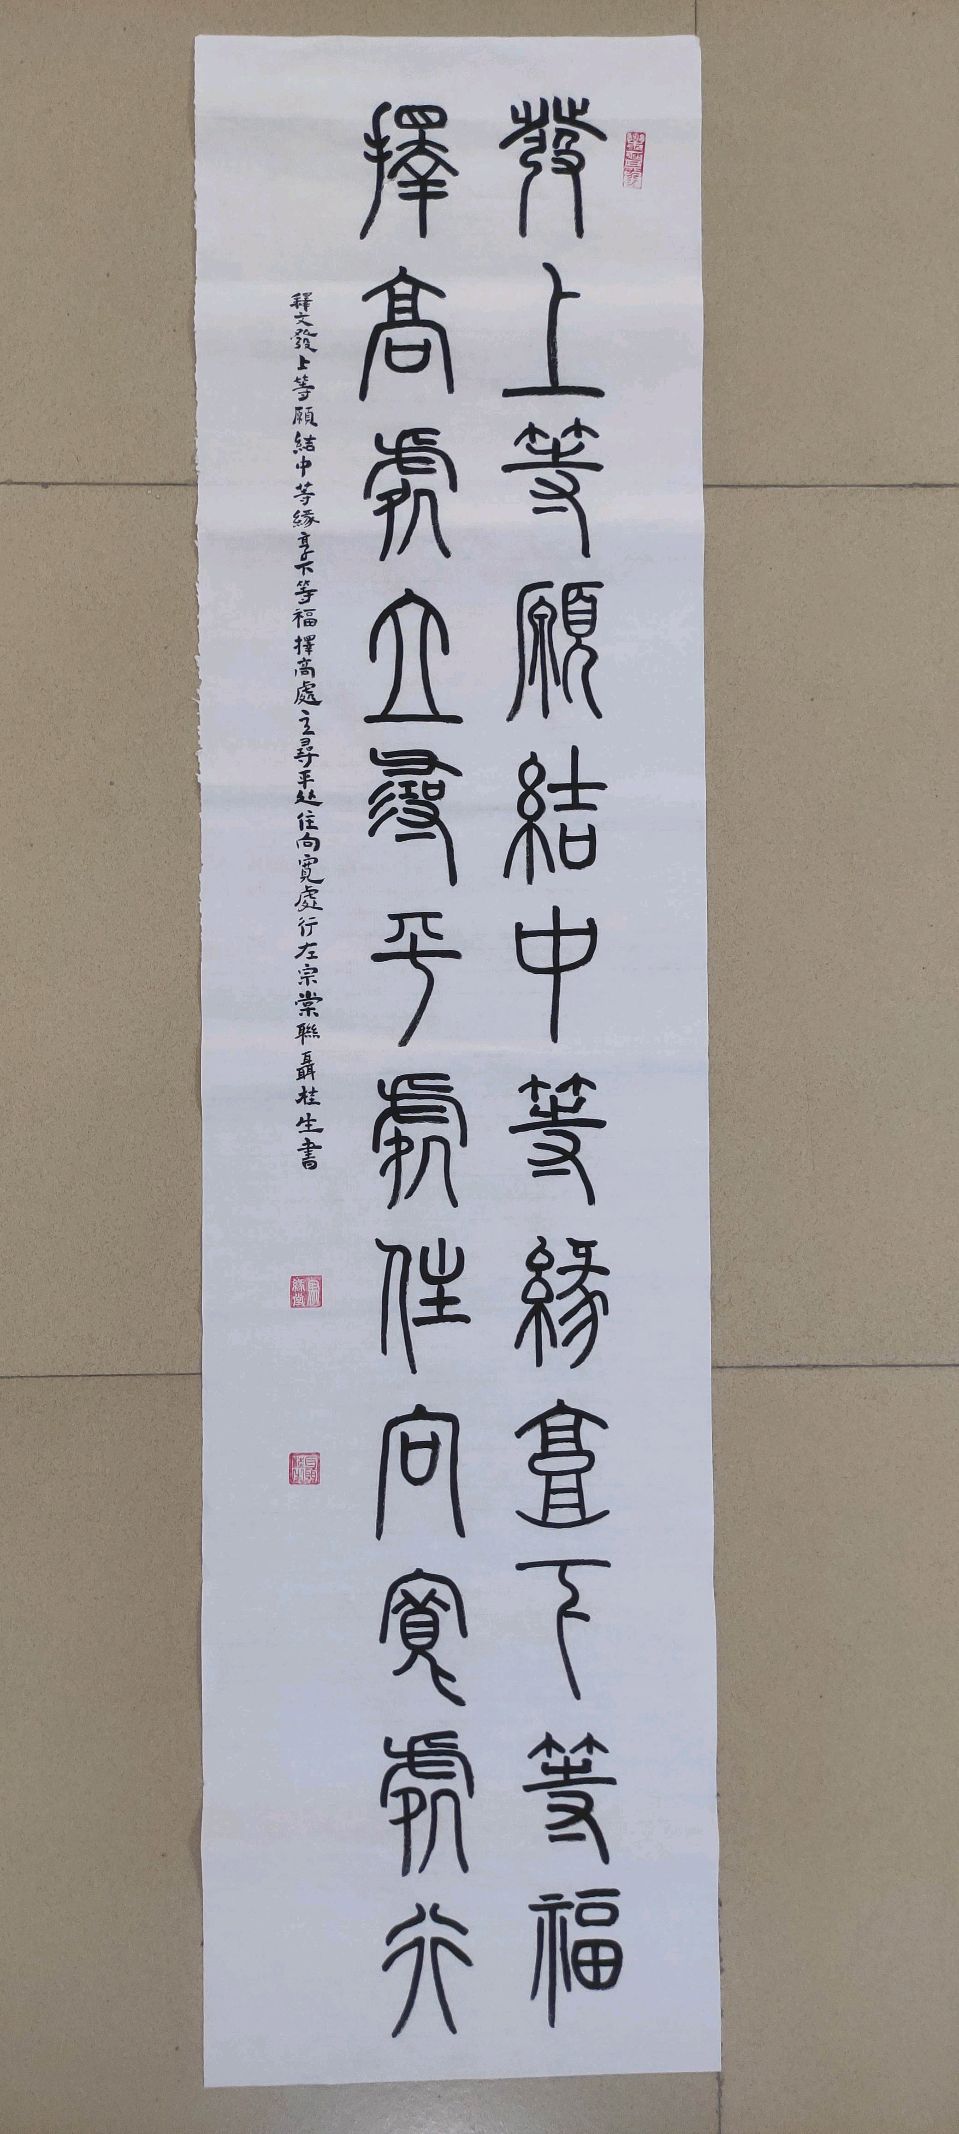 發上等願結中等緣享下等福
擇高處立尋平處住向寬處行
釋文發上等願結中等緣享下等福擇高處立尋平处住向寬處行左宗棠聯聶桂生書